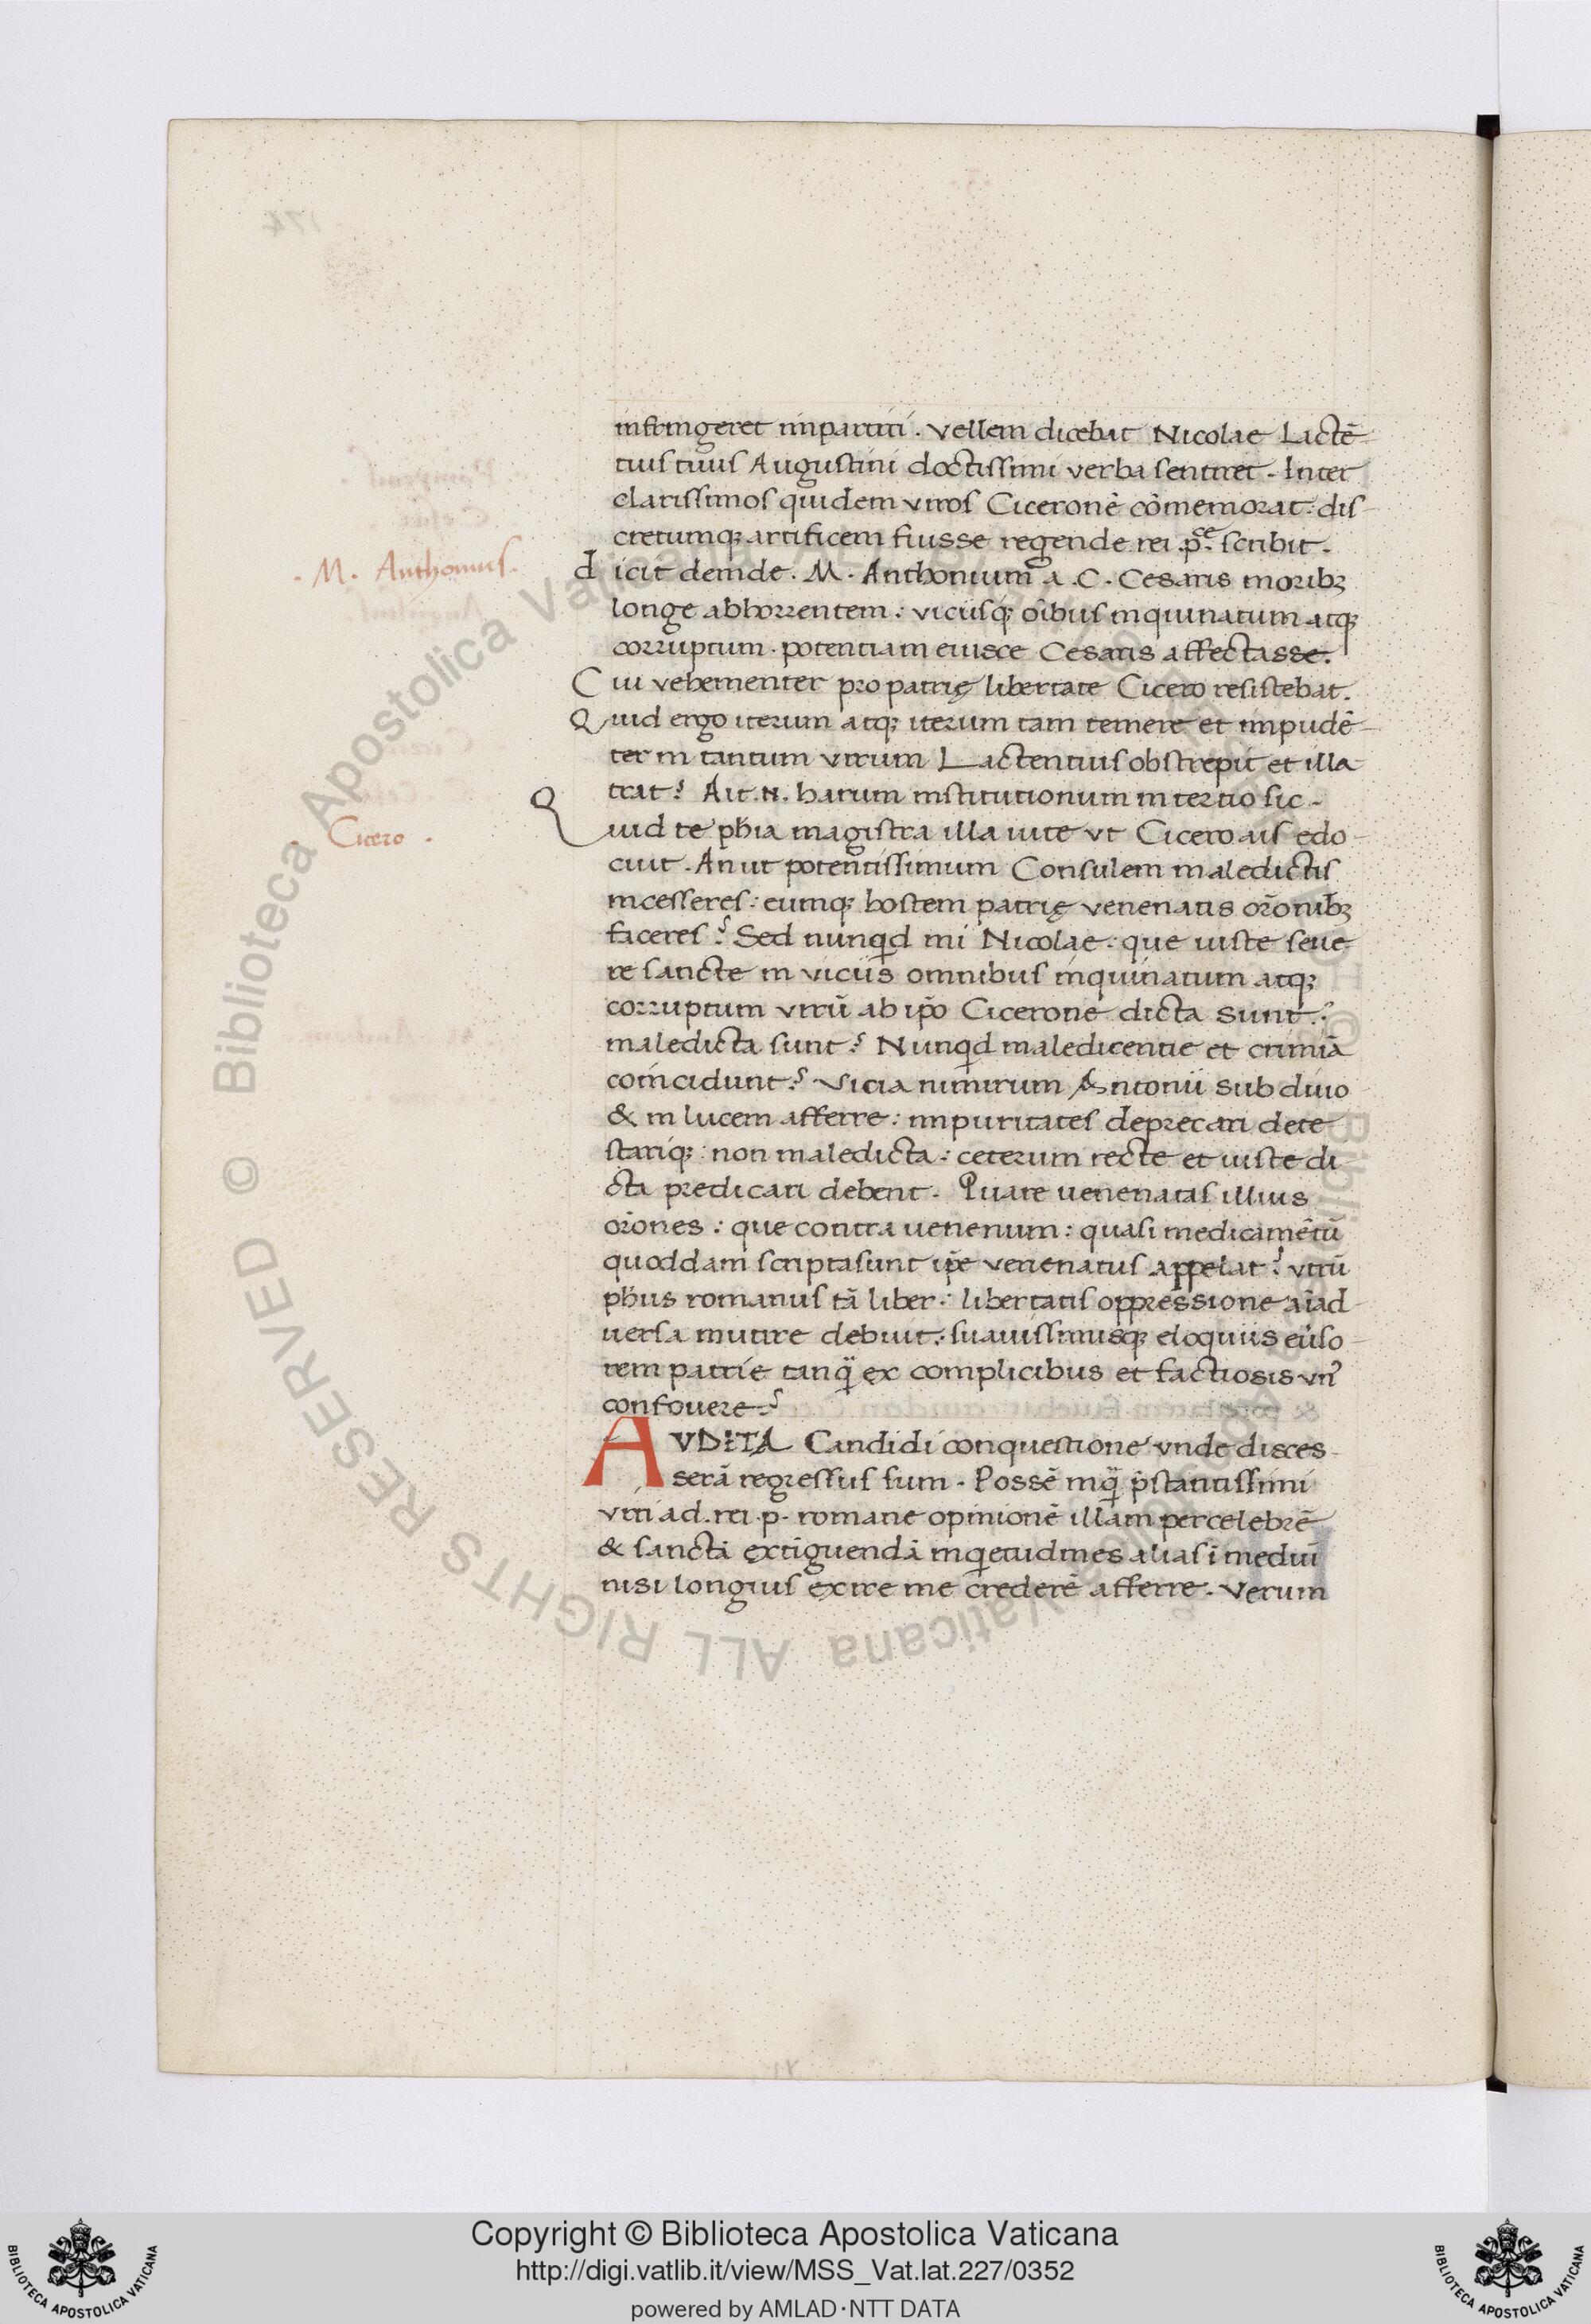 infringeret impartiri . Vellem dicebat Nicolae Lactē
tius tuus Augustini doctissimi verba sentiret . Inter
clarissimos quidem viros Ciceronē cōmemorat : dis
cretumq; artificem fuisse regende rei .p.ce scribit .
. M. Anthonius .
dicit deinde . M . Anthonium a .C. Cesaris morib;
longe abhorrentem : viciisq; oībus inquinatum atq;
corruptum . potentiam eiusce Cesaris affectasse .
Cui vehementer pro patrię libertate Cicero resistebat .
Quid ergo iterum atq; iterum tam temere et impudē
ter in tantum virum Lactentius obstrepit et illa
trat ? Ait .N. harum institutionum in tertio sic .
. Cicero .
Quid te ph̄ia magistra illa uite vt Cicero ais edo
cuit . An ut potentissimum Consulem maledictis
incesseres : eumq; hostem patrię venenatis orōnib;
faceres ? Sed nunqd mi Nicolae : que iuste seue
re sancte in viciis omnibus inquinatum atq;
corruptum virū ab ip̄o Cicerone dicta sunt :
maledicta sunt ? Nunqd maledicentie et crimīa
coincidunt ? Vicia nimirum Antonii sub diuo
& in lucem afferre : impuritates deprecari dete
starīq; : non maledicta : ceterum recte et iuste di
cta predicari debent . Quare uenenatas illius
orōnes : que contra uenenum : quasi medicamētū
quoddam scripta sunt ip̄e venenatus appelat ? vtrū
ph̄us romanus tā liber : libertatis oppressione aīad
uersa mutire debuit : suauissimusq; eloquiis eūso
rem patrie tanq̈ ex complicibus et factiosis vn̄
confouere ?
AVDITA Candidi conquestione vnde disces
serā regressus sum . Possē inq̈ p̄stantissimi
viri ad .rei .p. romane opinionē illam percelebrē
& sanctā extiguendā inqetudines alias ī mediū
nisi longius exire me crederē afferre . Verum
Copyright © Biblioteca Apostolica Vaticana
http://digi.vatlib.it/view/MSS_Vat.lat.227/0352
powered by AMLAD·NTT DATA